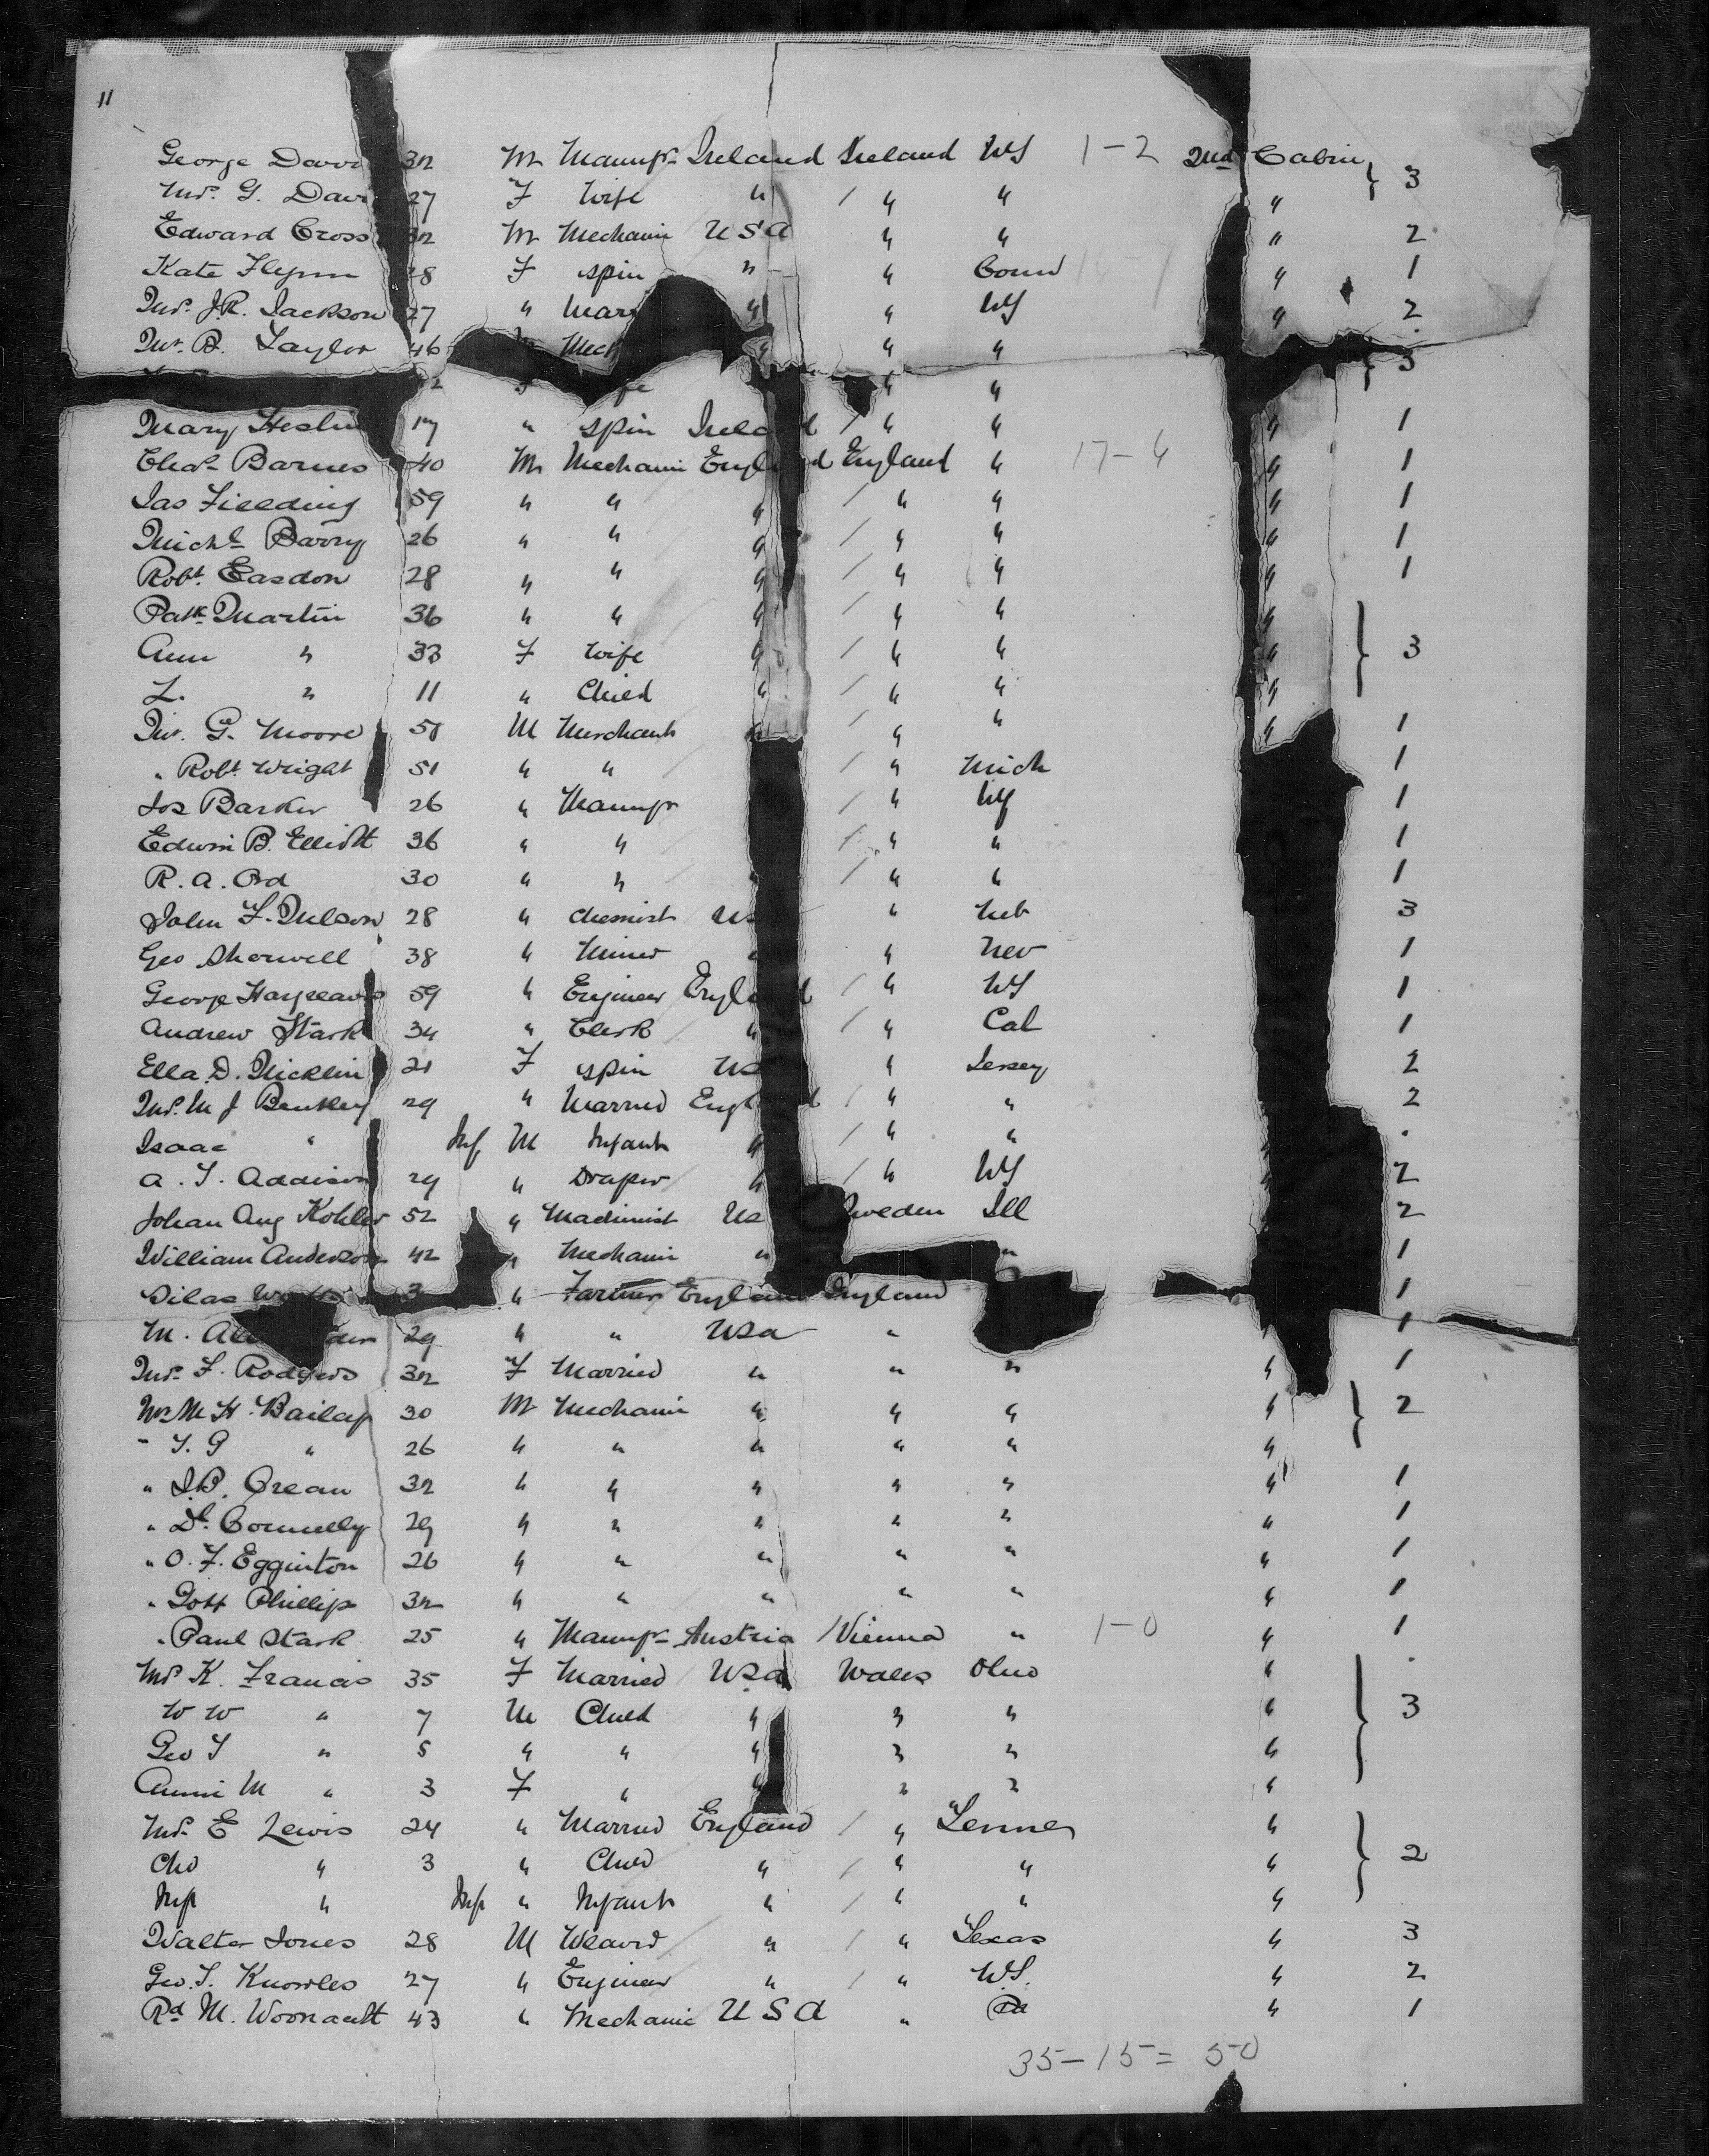 11
George Davi 32 M Manufr Ireland Ireland NY 1-2 2nd Cabin } 3
Mrs. G. Davi 27 F Wife " / " " "
Edward Cross 32 M Mechanic USA " " " 2
Kate Flynn 28 F Spin " " Conn " 1
Mrs. J.R. Jackson 27 " Marr " " NY " 2
Mr. B. Taylor 46 Mech " " " 3
fe " "
Mary Heslin 17 " Spin Irela d / " " " 1
Chas. Barnes 40 M Mechanic Engl d England " 17-4 " 1
Jas Fielding 59 " " " / " " " 1
Michl Barry 26 " " " / " " " 1
Robt. Easdon 28 " " " / " " " 1
Patk. Martin 36 " " " / " " "
Ann " 33 F Wife " / " " " } 3
L. " 11 " Child " / " " "
Mr. G. Moore 58 M Merchant " / " " " 1
" Robt. Wright 51 " " / " Mich 1
Jos Barker 26 " Manufr / " NY 1
Edwin B. Elliott 36 " " / " " 1
R. A. Ord 30 " " / " " 1
John F. Nelson 28 " Chemist Us " Neb 3
Geo Sherwell 38 " Miner " " Nev 1
George Hargreaves 59 " Engineer Engla d / " NY 1
Andrew Stark 34 " Clerk " / " Cal 1
Ella D. Nicklin 21 F Spin Us " Jersey 2
Mrs. M J Bentley 29 " Married Engl d / " " 2
Isaac " Inf M Infant " / " " .
A. T. Addison 29 " Draper " / " NY 2
Johan Aug Kohler 52 " Machinist Us Sweden Ill 2
William Anderson 42 " Mechanic " " 1
Silas 3 " Farmer England England 1
M. Al der 29 " " Usa " 1
Mrs. F. Rodgers 32 F Married " " " " 1
Mr. M H. Bailey 30 M Mechanic " " " " } 2
" T. G " 26 " " " " " "
" J.P. Crean 32 " " " " " " 1
" Dl. Connelly 29 " " " " " " 1
" O. F. Egginton 26 " " " " " " 1
" Gott Phillip 32 " " " " " " 1
" Paul Stark 25 " Manufr Austria / Vienna " 1-0 " 1
Mrs K. Francis 35 F Married Usa Wales Ohio " .
W W " 7 M Child " " " " } 3
Geo T " 5 " " " " " "
Annie M " 3 F " " " " "
Mrs. E Lewis 24 " Married England / " Tennes "
Chd " 3 " Child " / " " " } 2
Inf " Inf " Infant " / " " "
Walter Jones 28 M Weaver " / " Texas " 3
Geo. T. Knowles 27 " Engineer " / " NY. " 2
Rd M. Woonacutt 43 " Mechanic USA " Pa " 1
35-15= 50